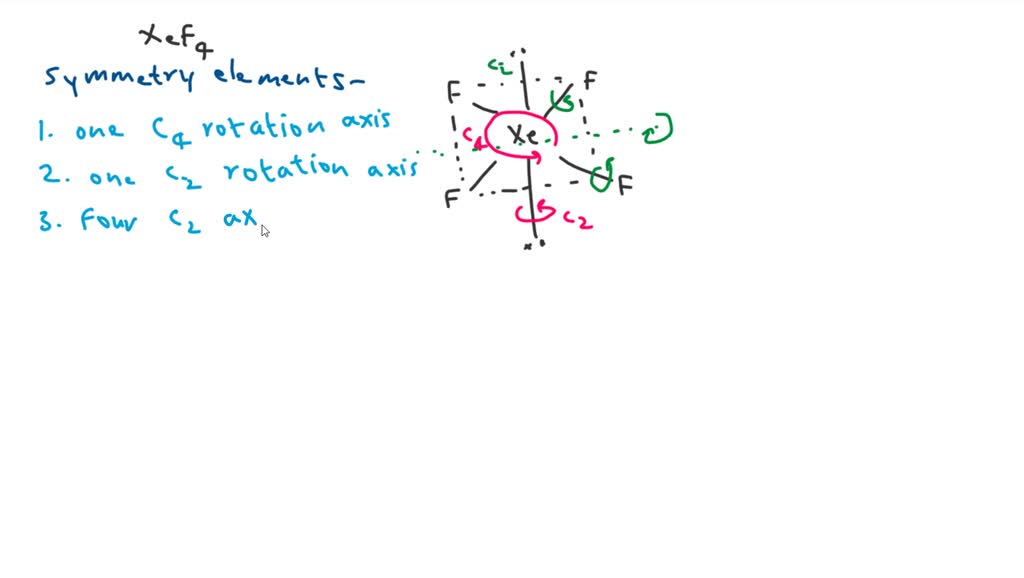 XeF4
Symmetry elements-
1. one C4 rotation axis
2. one C2 rotation axis
3. Four C2 ax
C2
F F
C4 Xe
F F
C2